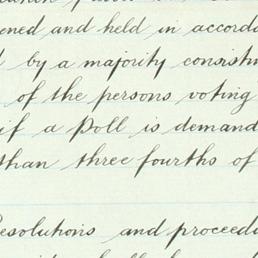 ened and held in accorda
by a majority consistin
of the persons voting
if a Poll is demand
than three fourths of
Resolutions and proceed